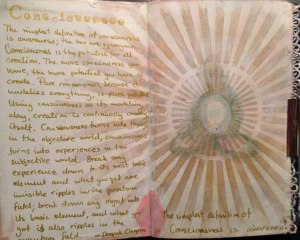 Consciousness
The simplest definition of consciousness
is awareness; the two are synonymous.
Consciousness is the potential for all
creation. The more consciousness you
have, the more potential you have to
create. Pure consciousness, because it
underlies everything, is pure potential.
Using consciousness as its modeling
clay, creation is continuously creating
itself. Consciousness turns into things
in the objective world, consciousness
turns into experiences in the
subjective world. Break any
experience down to its most basic
element and what you get are
invisible ripples in the quantum
field; break down any object into
its basic element, and what you
get is also ripples in the
quantum field. - Deepak Chopra
The simplest definition of
Consciousness is awareness